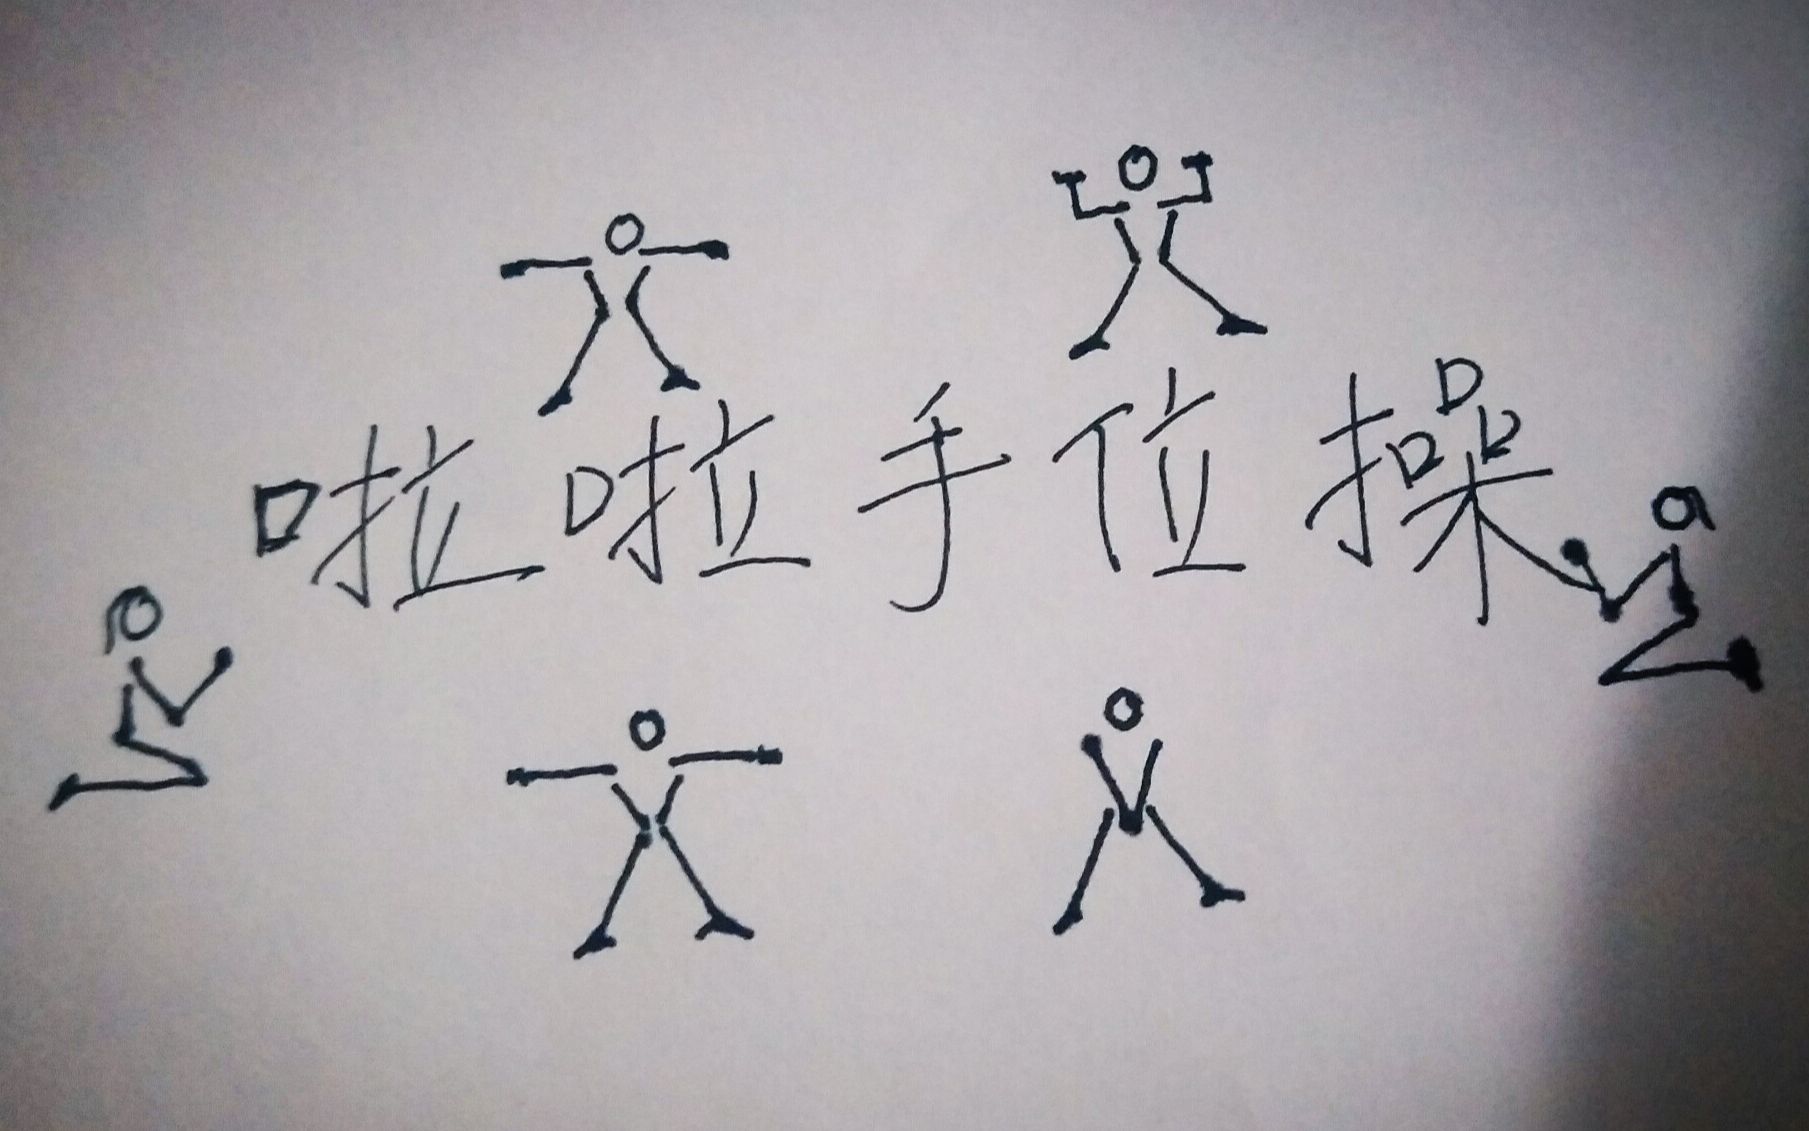 啦啦手位操